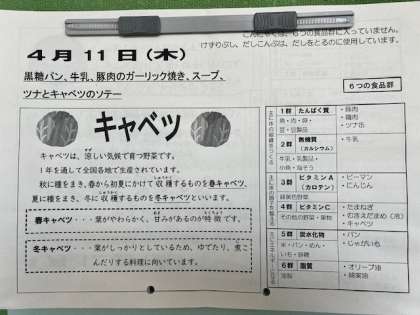 こんにゃくは、6つの食品群に入っていません。
けずりぶし、だしこんぶは、だしをとるのに使用しています。
4月11日(木)
黒糖パン、牛乳、豚肉のガーリック焼き、スープ、
ツナとキャベツのソテー
キャベツ
キャベツは、涼しい気候で育つ野菜です。
1年を通して全国各地で生産されています。
秋に種をまき、春から初夏にかけて収穫するものを春キャベツ、
夏に種をまき、冬に収穫するものを冬キャベツといいます。
春キャベツ・・・葉がやわらかく、甘みがあるのが特徴です。
冬キャベツ・・・葉がしっかりとしているため、ゆでたり、煮こ
んだりする料理に向いています。
6つの食品群
1群 たんぱく質
魚・肉・卵・
豆・豆製品
・豚肉
・鶏肉
・ツナ缶
2群 無機質
(カルシウム)
牛乳・乳製品・
小魚・海そう
・牛乳
3群 ビタミンA
(カロテン)
緑黄色野菜
・ピーマン
・にんじん
4群 ビタミンC
その他の野菜・果物
・たまねぎ
・キャベツ
5群 炭水化物
米・パン・めん・
いも・砂糖
・パン
・じゃがいも
6群 脂質
油脂
・オリーブ油
・綿実油